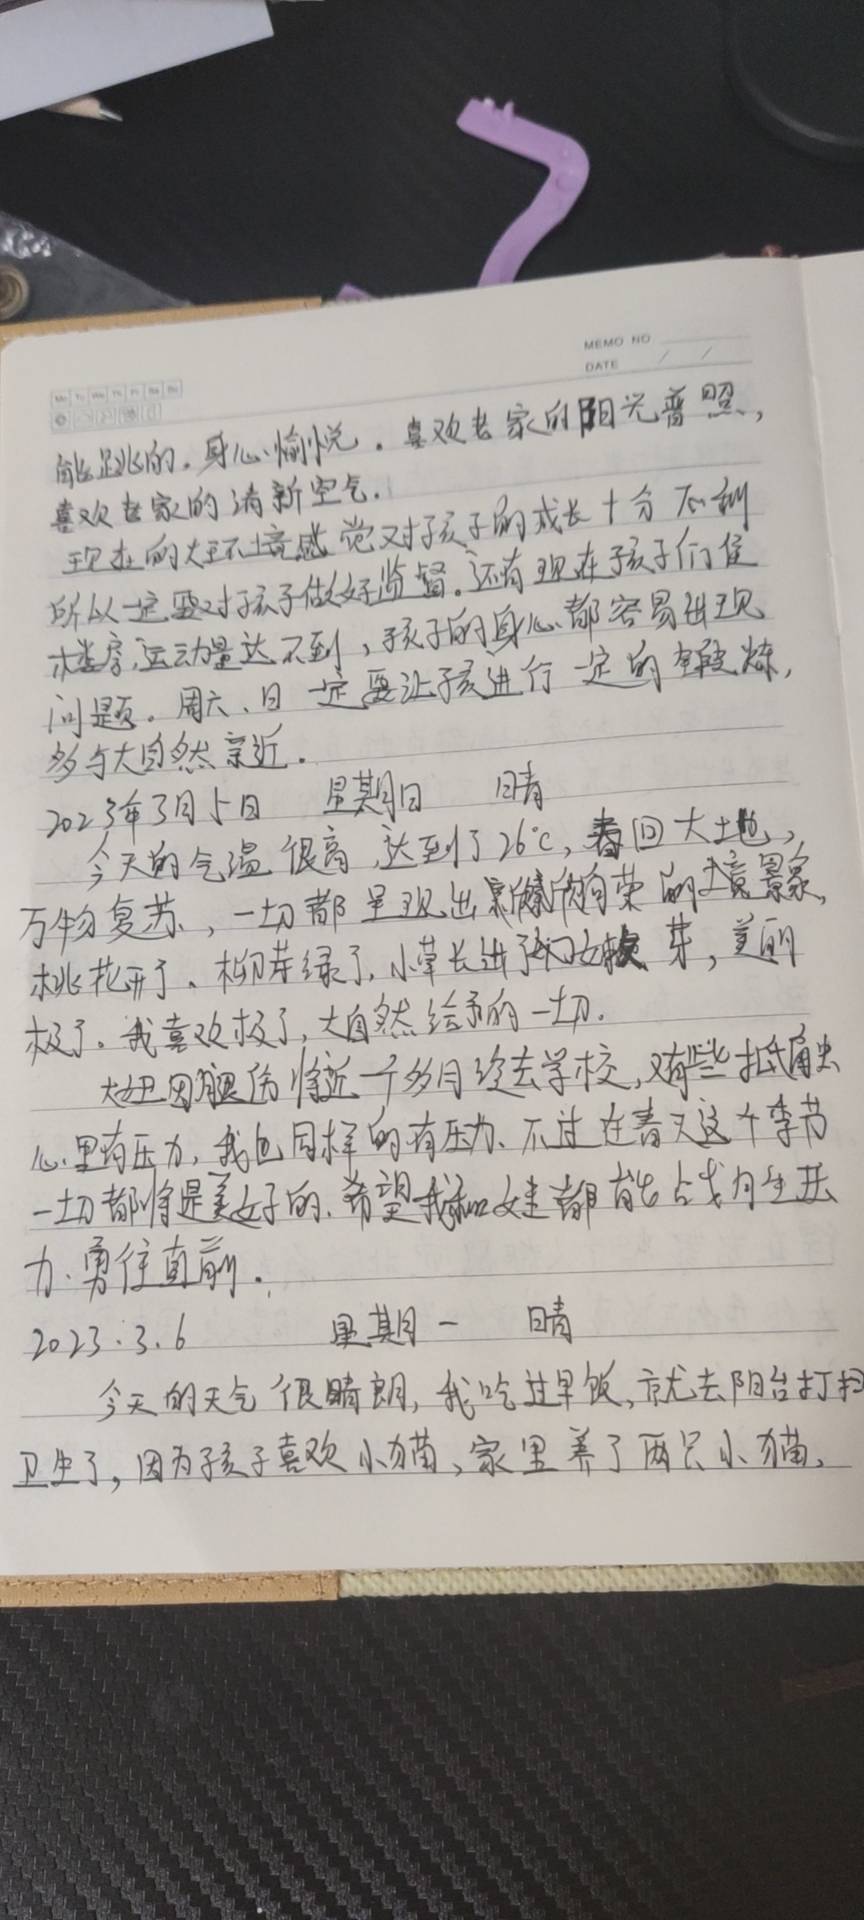 MEMO NO
DATE / /
Mo Tu We Th Fr Sa Su
能跳的。身心愉悦。喜欢老家的阳光普照，
喜欢老家的清新空气。
现在的大环境感觉对孩子的成长十分不利
所以一定要对孩子做好监督。还有现在孩子们住
楼房，运动量达不到，孩子的身心都容易出现
问题。周六、日一定要让孩进行一定的锻炼，
多与大自然亲近。
2023年3月5日 星期日 晴
今天的气温很高，达到了26℃，春回大地，
万物复苏，一切都呈现出欣欣向荣的境景象，
桃花开了。柳芽绿了，小草长进了 芽，美丽
极了。我喜欢极了，大自然给予的一切。
大妞因腿伤将近一个多月没去学校，又有些抵触
心里有压力，我也同样的有压力、不过在春天这个季节
一切都将是美好的、希望我和娃都能占戈有生活
力、勇往直前。
2023.3.6 星期一 晴
今天的天气很晴朗，我吃过早饭，就去阳台打扫
卫生了，因为孩子喜欢小猫，家里养了两只小猫，